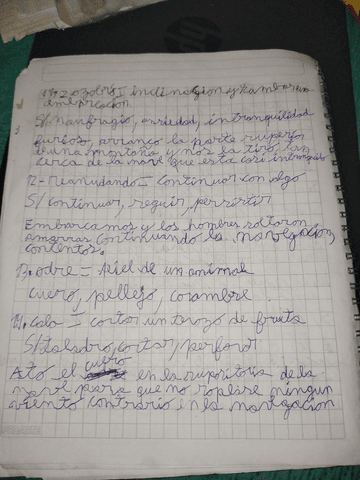 zozobra= inclinación y cambar
embarcación
S/ naufragio, ansiedad, intranquilidad
furioso, arranco la parte superior
de una montaña y nos la tiro, tan
cerca de la nave que esta casi
12- reanudando= continuar con algo
S/ continuar, seguir, persistir
Embarcamos y los hombres soltaron
amarras continuando la navegacion,
contentos.
13. odre= piel de un animal
cuero, pellejo, corambre
14. cala= cortar un trozo de fruta
S/ taladro, cortar, perforar
Ato el cuero en la de la
nave para que no soplase ningun
viento contrario en la navegacion